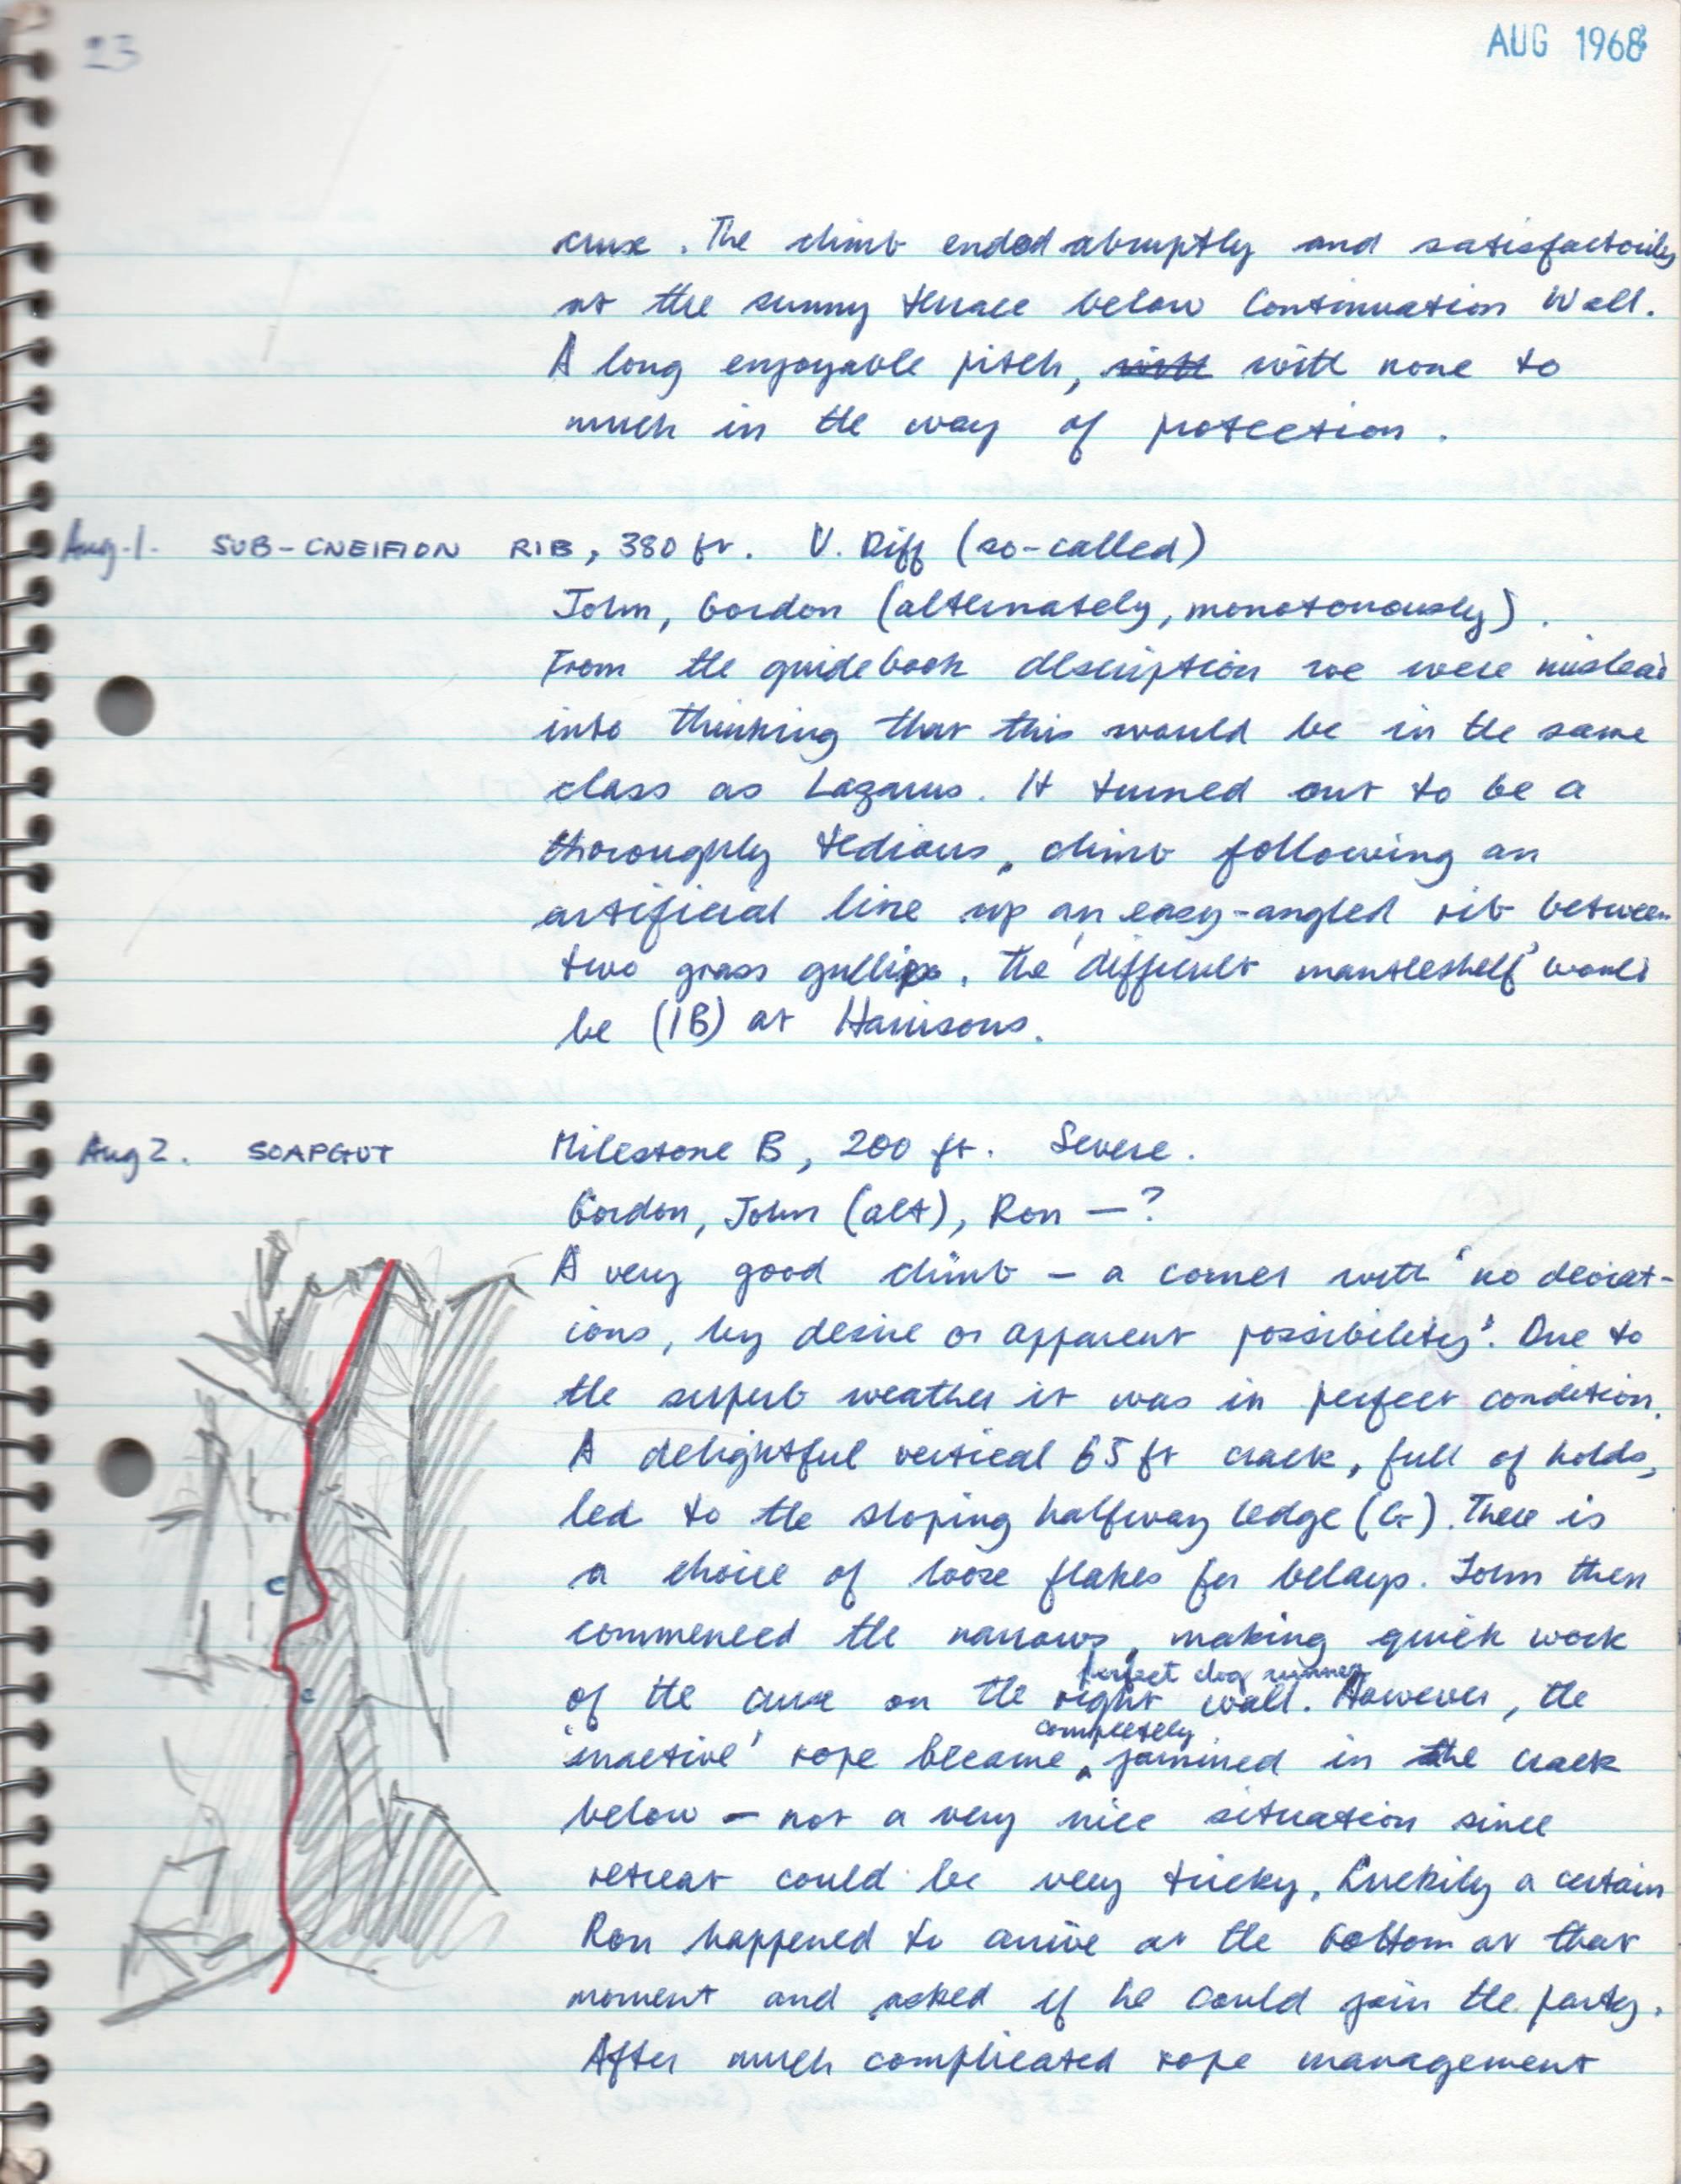 23
AUG 1968
crux. The climb ended abruptly and satisfactorily
at the sunny terrace below Continuation Wall.
A long enjoyable pitch, with with none to
much in the way of protection.
Aug 1. SUB-CNEIFION RIB, 380 ft. V. Diff (so-called)
John, Gordon (alternately, monotonously).
From the guidebook description we were mislead
into thinking that this would be in the same
class as Lazarus. It turned out to be a
thoroughly tedious, climb following an
artificial line up an easy-angled rib between
two grass gullies. The 'difficult mantleshelf' would
be (1B) at Harrisons.
Aug 2. SOAPGUT Milestone B, 200 ft. Severe.
Gordon, John (alt), Ron — ?
A very good climb — a corner with 'no deviat-
ions, by desire or apparent possibility'. Due to
the superb weather it was in perfect condition.
A delightful vertical 65 ft crack, full of holds,
led to the sloping halfway ledge (G). There is
a choice of loose flakes for belays. John then
commenced the narrows, making quick work
perfect chog runner
of the crux on the right wall. However, the
completely
'inactive' rope became jammed in the crack
below — not a very nice situation since
retreat could be very tricky. Luckily a certain
Ron happened to arrive at the bottom at that
moment and asked if he could join the party.
After much complicated rope management
c
c